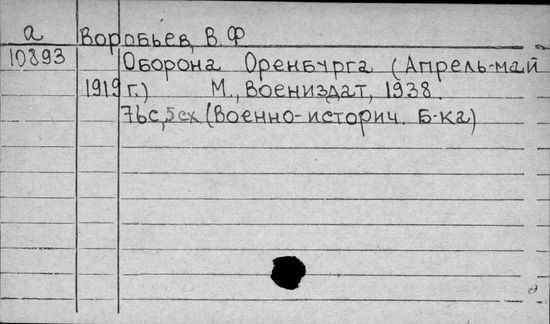 а Воробьев, В.Ф
10893 Оборона Оренбурга (Апрель-май
1919 г.) М., Воениздат, 1938.
76с, 5сх (Военно-историч. Б-ка)